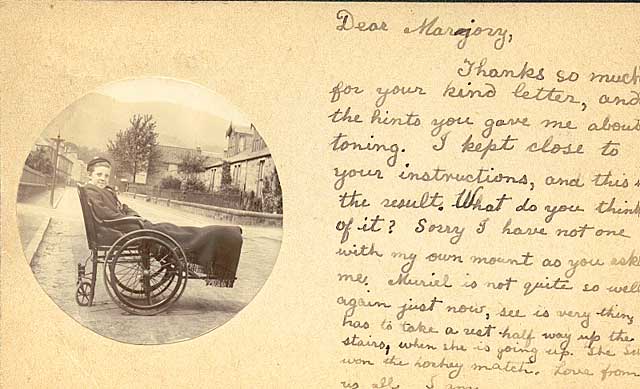 Dear Marjory,
Thanks so much
for your kind letter, and
the hints you gave me about
toning. I kept close to
your instructions, and this is
the result. What do you think
of it? Sorry I have not one
with my own mount as you asked
me. Muriel is not quite so well
again just now, see is very thin,
has to take a rest half way up the
stairs, when she is going up. The
won the hockey match. Love from
us all. I am